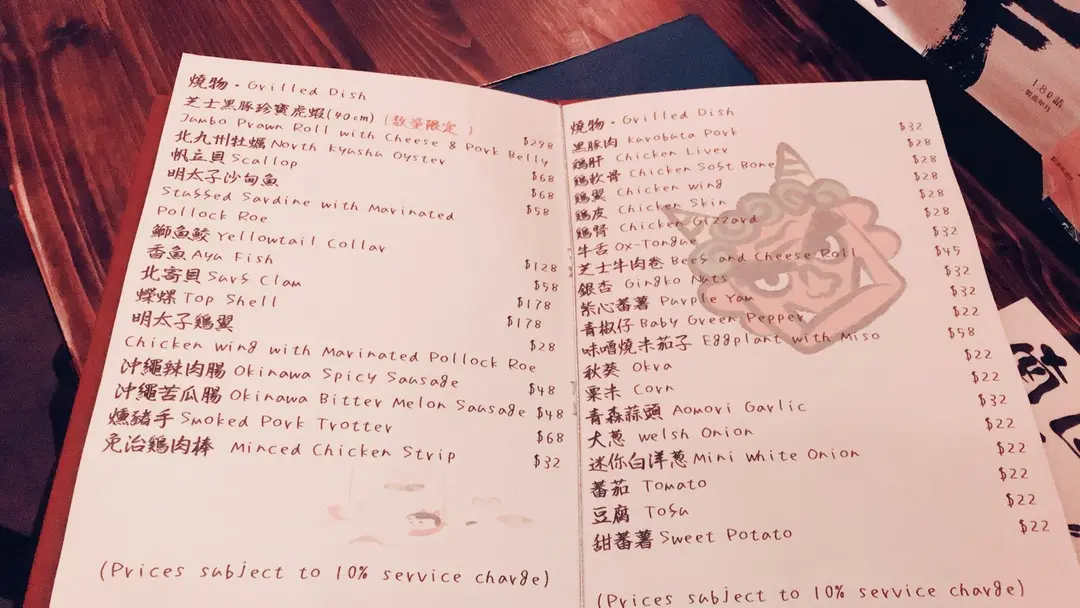 燒物・Grilled Dish
芝士黑豚珍寶虎蝦(40cm) (數量限定)
Jumbo Prawn Roll with Cheese & Pork Belly $298
北九州牡蠣 North Kyushu Oyster $68
帆立貝 Scallop $68
明太子沙甸魚
Stuffed Sardine with Marinated $58
Pollock Roe
鰤魚鮫 Yellowtail Collar $128
香魚 Aya Fish $58
北寄貝 Surf Clam $178
蠑螺 Top Shell $178
明太子鷄翼 $28
Chicken wing with Marinated Pollock Roe
沖繩辣肉腸 Okinawa Spicy Sausage $48
沖繩苦瓜腸 Okinawa Bitter Melon Sausage $48
燻豬手 Smoked Pork Trotter $68
免治鷄肉棒 Minced Chicken Strip $32
(Prices subject to 10% service charge)
燒物・Grilled Dish
黑豚肉 Kurobuta Pork $32
鷄肝 Chicken Liver $28
鷄軟骨 Chicken Soft Bone $28
鷄翼 Chicken wing $28
鷄皮 Chicken Skin $28
鷄腎 Chicken Gizzard $28
牛舌 Ox-Tongue $32
芝士牛肉卷 Beef and Cheese Roll $45
銀杏 Gingko Nuts $32
紫心蕃薯 Purple Yam $32
青椒仔 Baby Green Pepper $22
味噌燒米茄子 Eggplant with Miso $58
秋葵 Okra $22
粟米 Corn $22
青森蒜頭 Aomori Garlic $32
大蔥 Welsh Onion $22
迷你白洋蔥 Mini White Onion $22
蕃茄 Tomato $22
豆腐 Tofu $22
甜蕃薯 Sweet Potato $22
(Prices subject to 10% service charge)
1.8ℓ詰